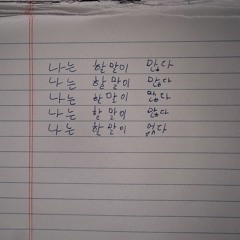 나는 할 말이 많다
나는 할 말이 많다
나는 할 말이 많다
나는 할 말이 많다
나는 할 말이 없다